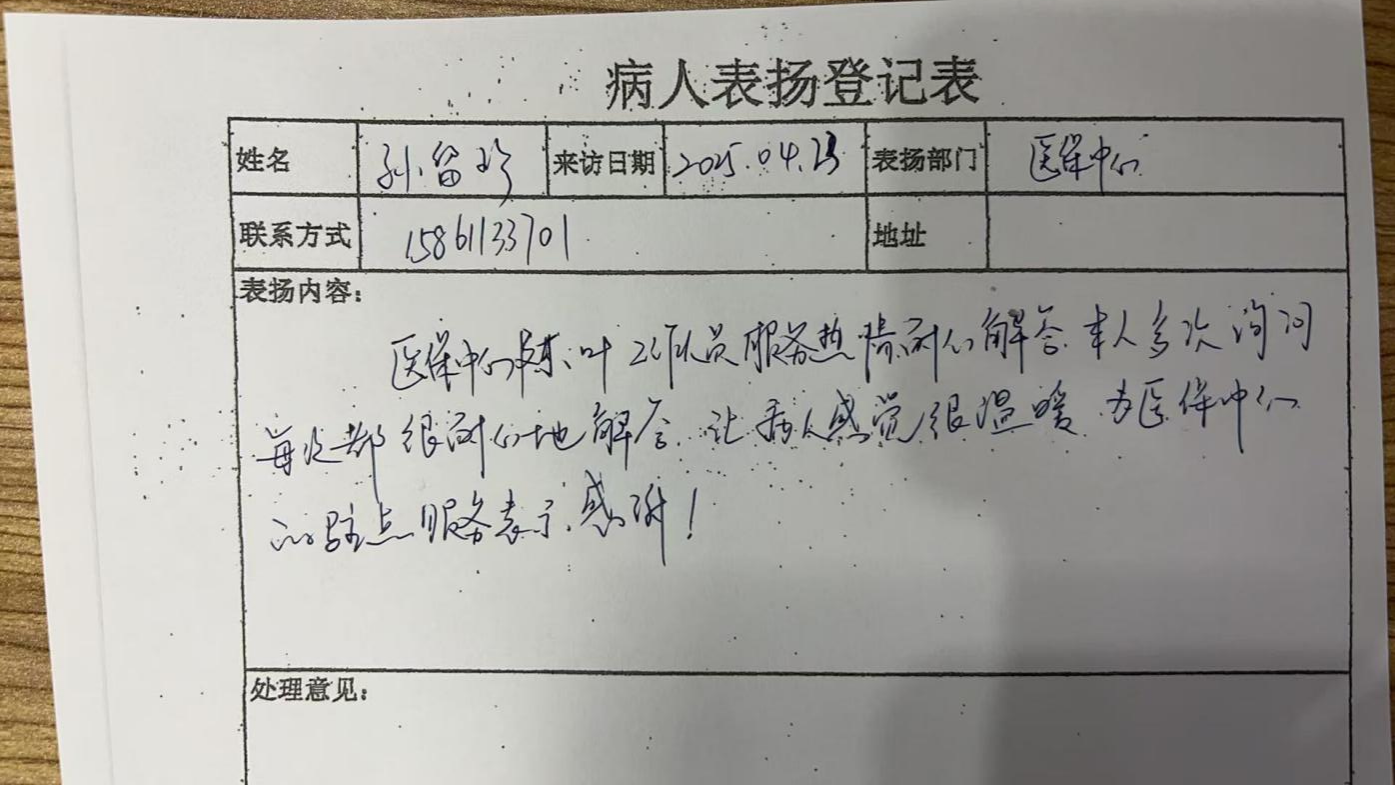 病人表扬登记表
姓名 孙留珍 来访日期 2025.04.23 表扬部门 医保中心
联系方式 15861133701 地址
表扬内容:
医保中心 叶 工作人员服务热情耐心解答.本人多次询问
每次都很耐心地解答.让病人感觉很温暖.为医保中心
的驻点服务表示感谢!
处理意见: